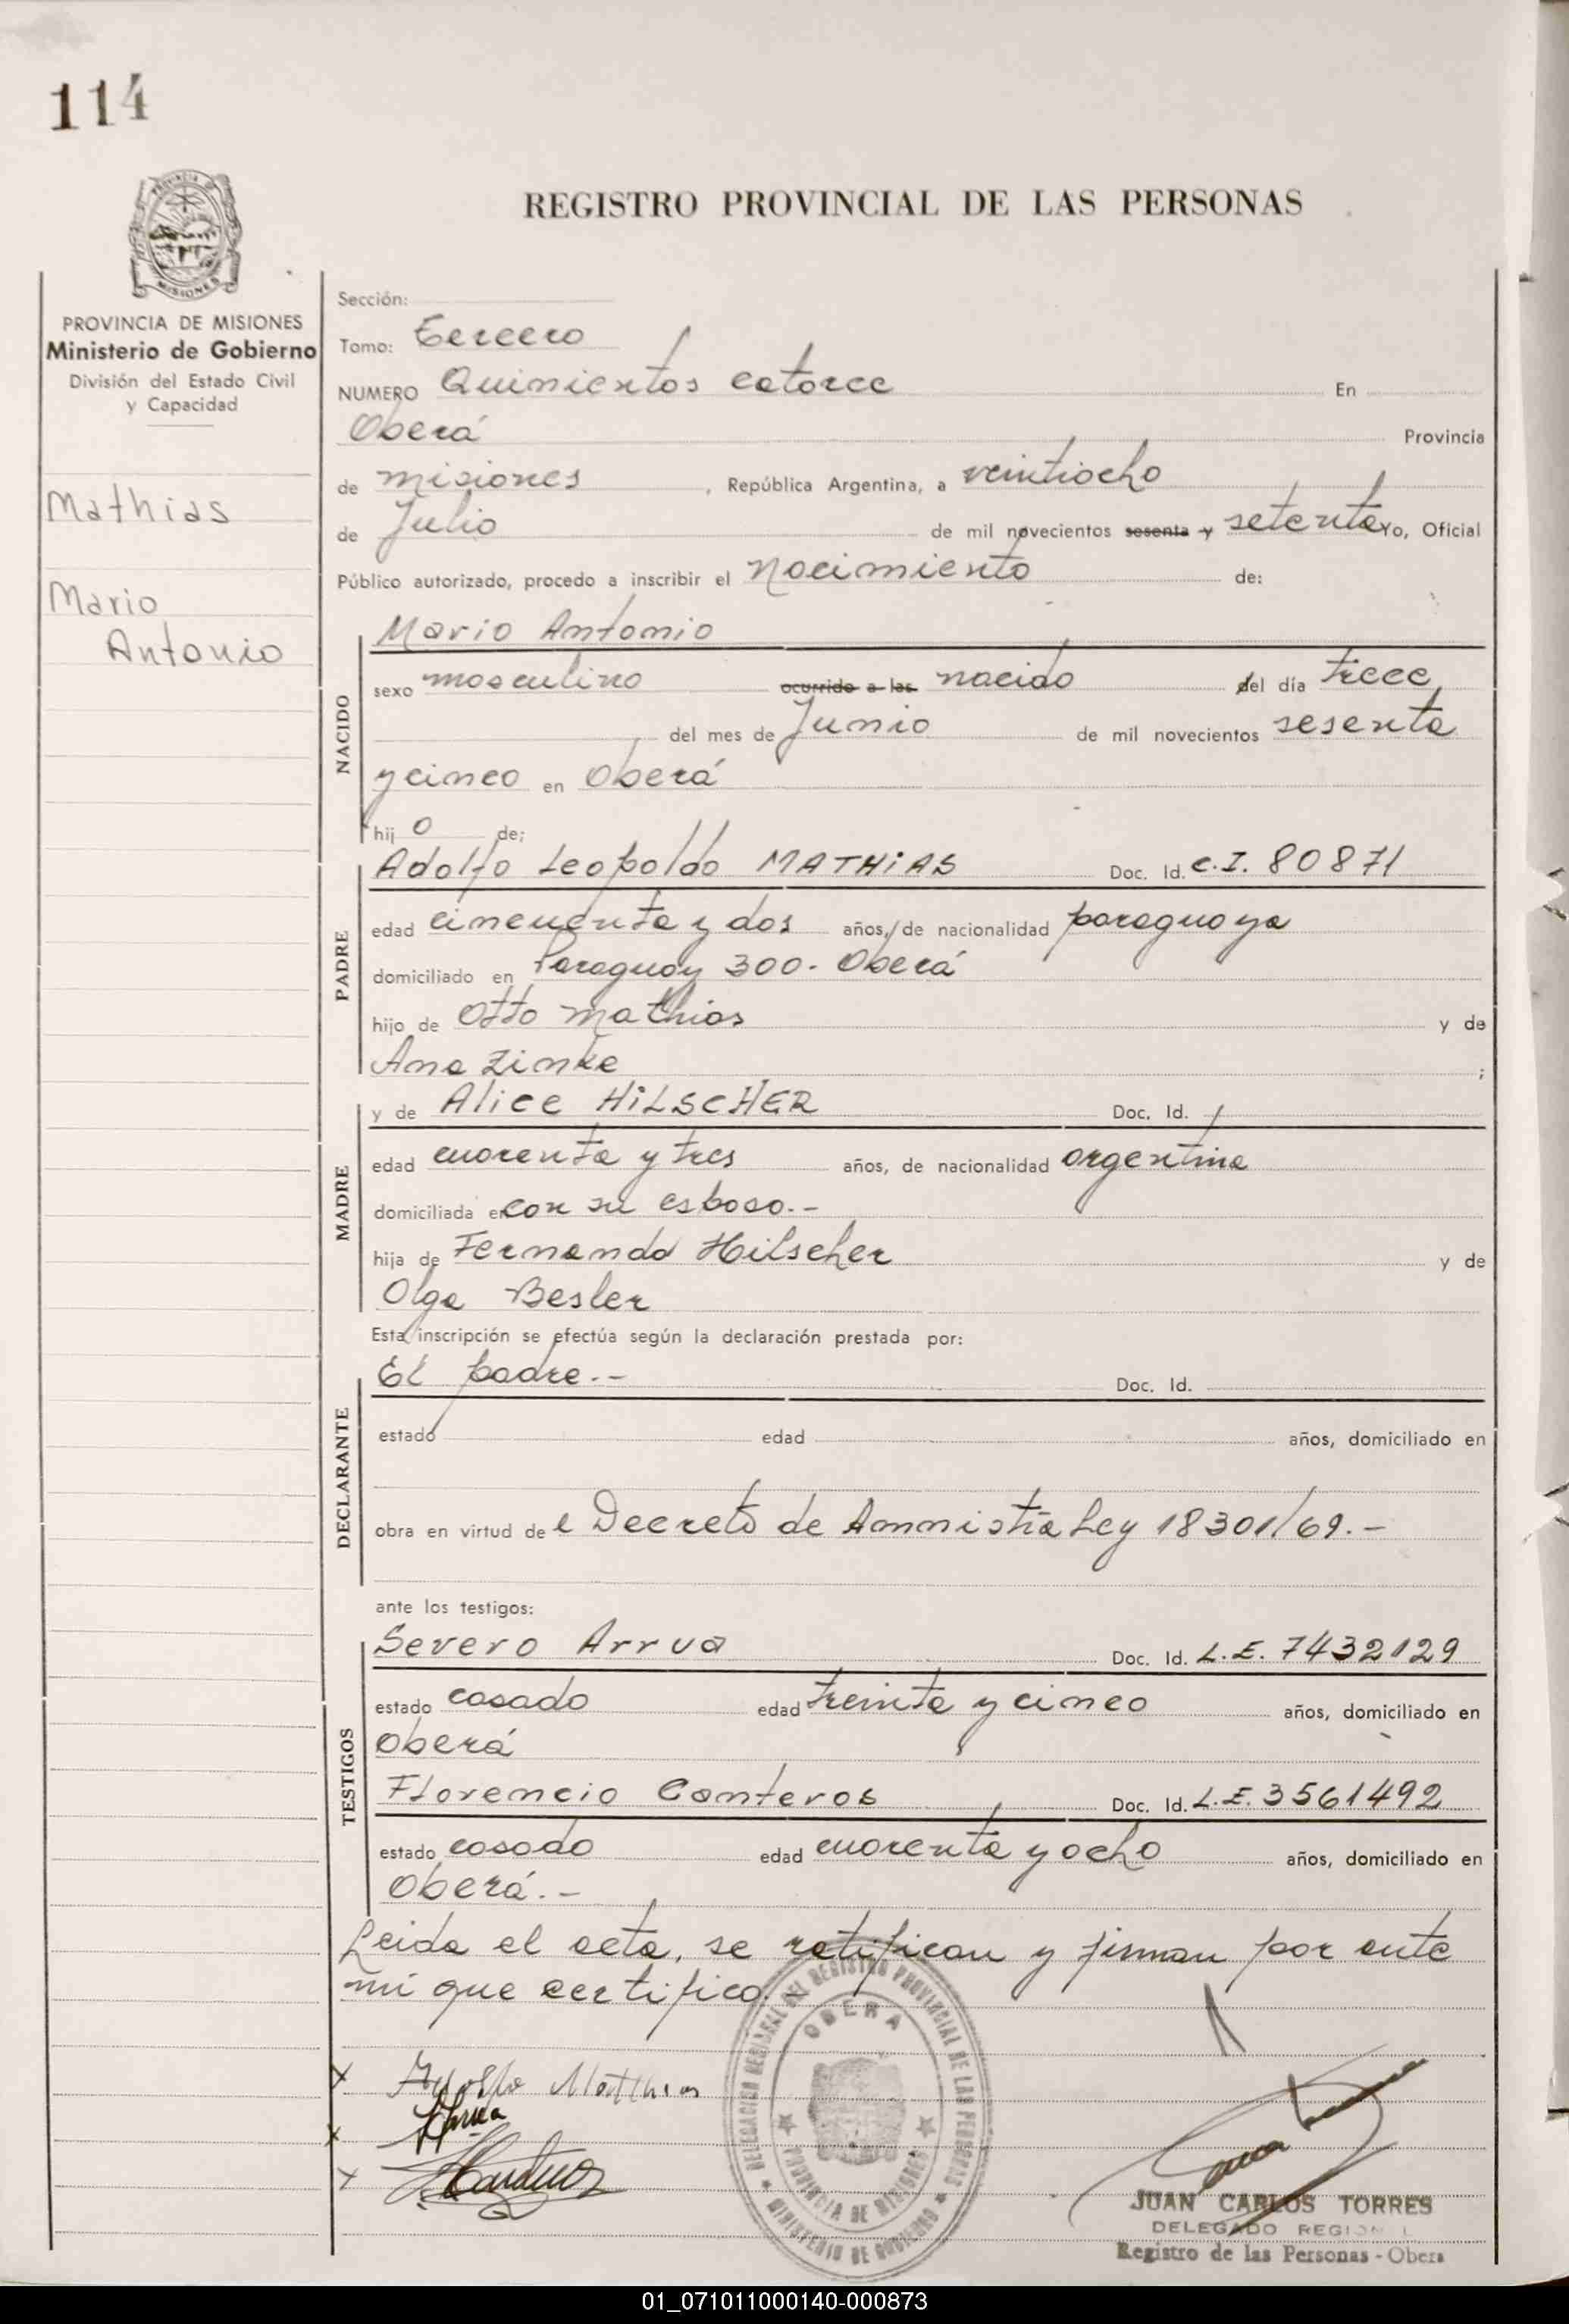 114
REGISTRO PROVINCIAL DE LAS PERSONAS
PROVINCIA DE MISIONES
Ministerio de Gobierno
División del Estado Civil
y Capacidad
Mathias
Mario
Antonio
Sección:
Tomo: Tercero
NUMERO Quinientos catorce En
Oberá Provincia
de misiones, República Argentina, a veintiocho
de Julio de mil novecientos sesenta y setenta Yo, Oficial
Público autorizado, procedo a inscribir el Nacimiento de:
NACIDO
Mario Antonio
sexo masculino ocurrido a las nacido del día trece
del mes de Junio de mil novecientos sesenta
y cinco en Oberá
hij o de:
PADRE
Adolfo Leopoldo MATHiAS Doc. Id. C.I. 80871
edad cincuenta y dos años, de nacionalidad paraguaya
domiciliado en Paraguay 300. Oberá
hijo de Otto Mathias y de
Ana Zimke ;
MADRE
y de Alice HiLSCHER Doc. Id. /
edad cuarenta y tres años, de nacionalidad argentina
domiciliada en con su esposo.-
hija de Fernando Hilscher y de
Olga Besler
Esta inscripción se efectúa según la declaración prestada por:
DECLARANTE
El padre.- Doc. Id.
estado edad años, domiciliado en
obra en virtud de l Decreto de Amnistía Ley 18301/69.-
ante los testigos:
TESTIGOS
Severo Arrua Doc. Id. L.E. 7432129
estado casado edad treinta y cinco años, domiciliado en
Oberá
Florencio Canteros Doc. Id. L.E. 3561492
estado casado edad cuarenta y ocho años, domiciliado en
Oberá.-
Leida el acta, se ratifican y firman por ante
mi que certifico.
Adolfo Matthias
Arrua
DELEGACION REGIONAL DEL REGISTRO PROVINCIAL DE LAS PERSONAS
OBERA
PROVINCIA DE MISIONES
MINISTERIO DE GOBIERNO
JUAN CARLOS TORRES
DELEGADO REGIONAL
Registro de las Personas - Obera
01_071011000140-000873